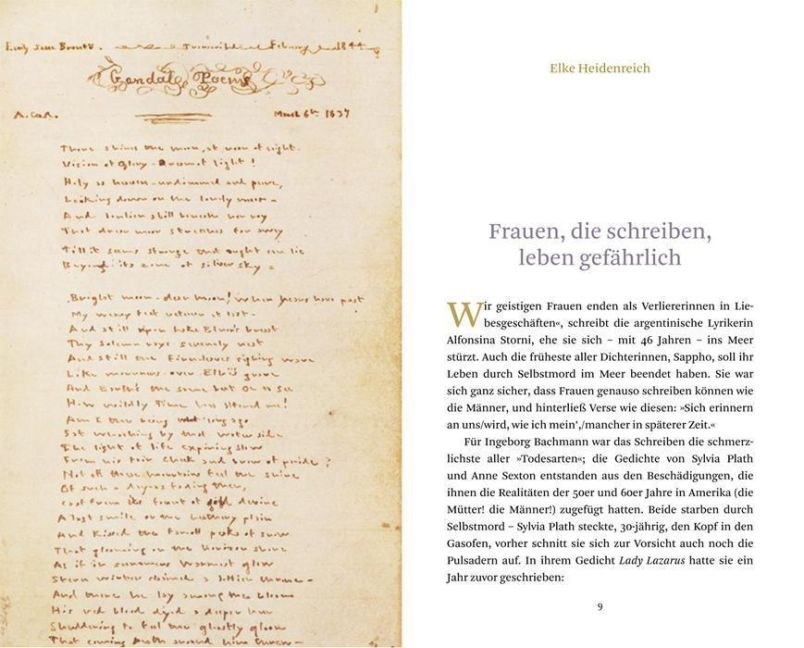 Emily Jane Brontë. Transcribed February 1844
Gondal Poems
March 6th 1837
There shines the moon, at noon of night.
Vision of Glory - Dream of light!
Holy as heaven - undimmed and pure,
Looking down on the lonely moor -
And lonlier still beneath her ray
That drear moor stretches far away
Till it seems strange that aught can lie
Beyond its zone of silver sky -
Bright moon - dear moon! when years have past
My weary feet return at last -
And still upon Lake Elnor's breast
Thy solemn rays serenely rest
And still the Fern-leaves sighing wave
Like mourners over Elbë's grave
And Earth's the same but Oh to see
How wildly Time has altered me!
Am I the being who long ago
Sat watching by that water side
The light of life expiring slow
From his fair cheek and brow of pride?
Not oft these mountains feel the shine
Of such a day - as fading then,
Cast from its fount of gold devine
A last smile on the heathery plain
And kissed the far-off peaks of snow
That gleaming on the horizon shone
As if in summer's warmest glow
Stern winter claimed a loftier throne -
And there he lay among the bloom
His red blood dyed a deeper hue
Shuddering to feel the ghostly gloom
That coming Death around him threw -
Elke Heidenreich
Frauen, die schreiben,
leben gefährlich
Wir geistigen Frauen enden als Verliererinnen in Lie-
besgeschäften«, schreibt die argentinische Lyrikerin
Alfonsina Storni, ehe sie sich – mit 46 Jahren – ins Meer
stürzt. Auch die früheste aller Dichterinnen, Sappho, soll ihr
Leben durch Selbstmord im Meer beendet haben. Sie war
sich ganz sicher, dass Frauen genauso schreiben können wie
die Männer, und hinterließ Verse wie diesen: »Sich erinnern
an uns/wird, wie ich mein',/mancher in späterer Zeit.«
Für Ingeborg Bachmann war das Schreiben die schmerz-
lichste aller »Todesarten«; die Gedichte von Sylvia Plath
und Anne Sexton entstanden aus den Beschädigungen, die
ihnen die Realitäten der 50er und 60er Jahre in Amerika (die
Mütter! die Männer!) zugefügt hatten. Beide starben durch
Selbstmord – Sylvia Plath steckte, 30-jährig, den Kopf in den
Gasofen, vorher schnitt sie sich zur Vorsicht auch noch die
Pulsadern auf. In ihrem Gedicht Lady Lazarus hatte sie ein
Jahr zuvor geschrieben:
9